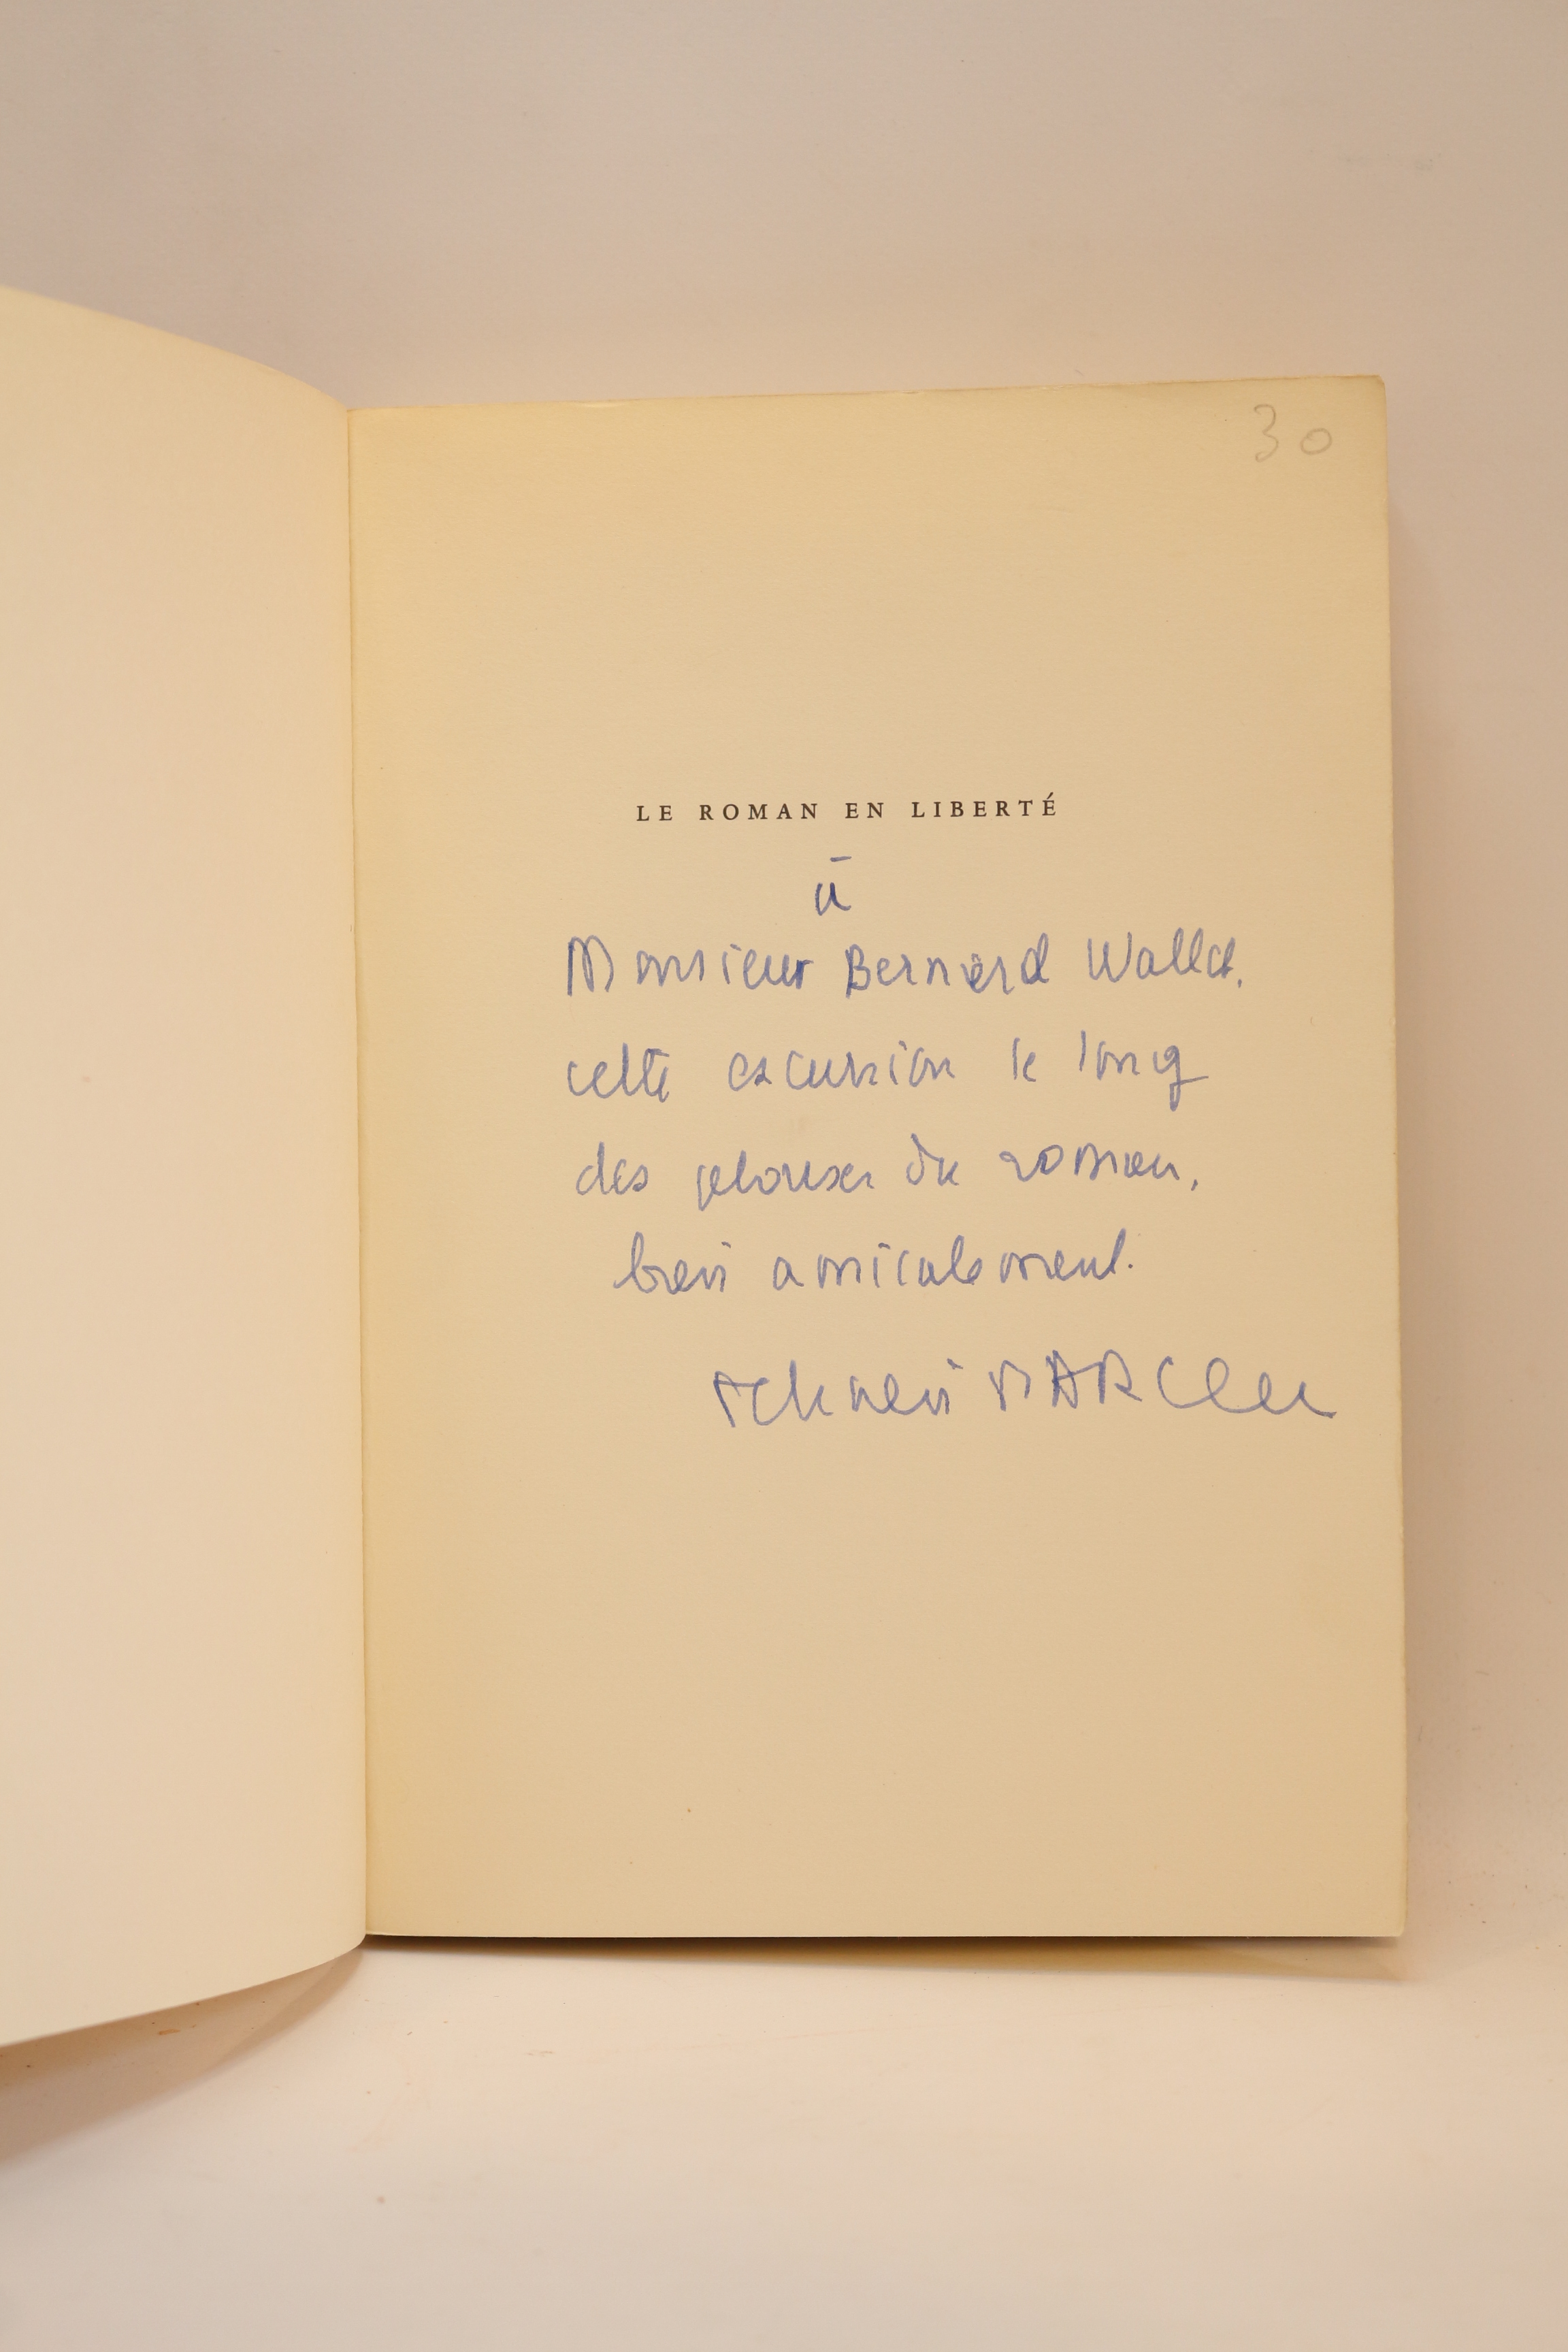 30
LE ROMAN EN LIBERTÉ
à
Monsieur Bernard
cette excursion le long
des pelouses du roman,
bien amicalement.